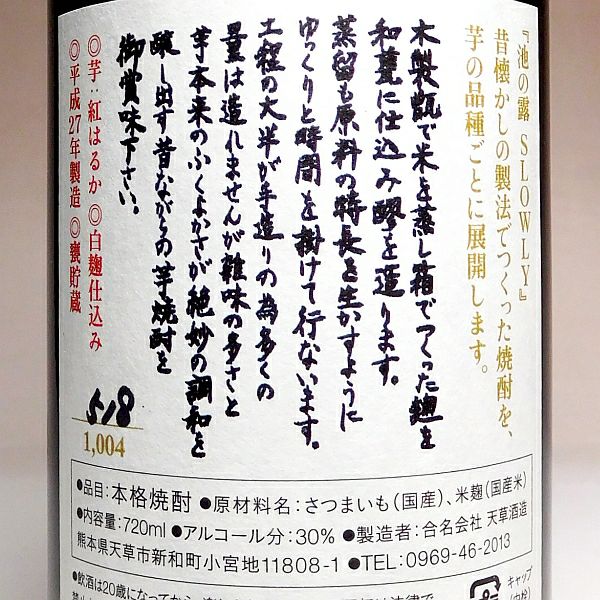 『池の露 SLOWLY』
昔懐かしの製法でつくった焼酎を、
芋の品種ごとに展開します。
木製甑で米を蒸し箱でつくった麹を
和甕に仕込み醪を造ります。
蒸留も原料の特長を生かすように
ゆっくりと時間を掛けて行ないます。
工程の大半が手造りの為多くの
量は造れませんが雑味の多さと
芋本来のふくよかさが絶妙の調和を
醸し出す昔ながらの芋焼酎を
御賞味下さい。
◎芋:紅はるか ◎白麹仕込み
◎平成27年製造 ◎甕貯蔵
518
1,004
●品目:本格焼酎 ●原材料名:さつまいも(国産)、米麹(国産米)
●内容量:720ml ●アルコール分:30% ●製造者:合名会社 天草酒造
熊本県天草市新和町小宮地11808-1 ●TEL:0969-46-2013
●飲酒は20歳になってから。
キャップ